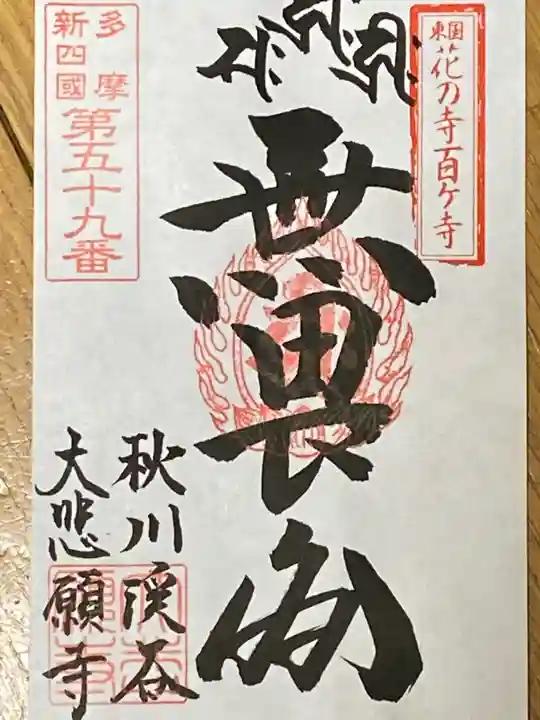 東国花の寺百ケ寺
無畏閣
秋川渓谷
大悲願寺
多摩
新四國
第五十九番